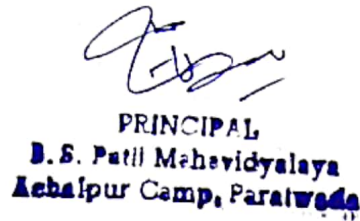 PRINCIPAL
B. S. Patil Mahavidyalaya
Achalpur Camp, Paratwada